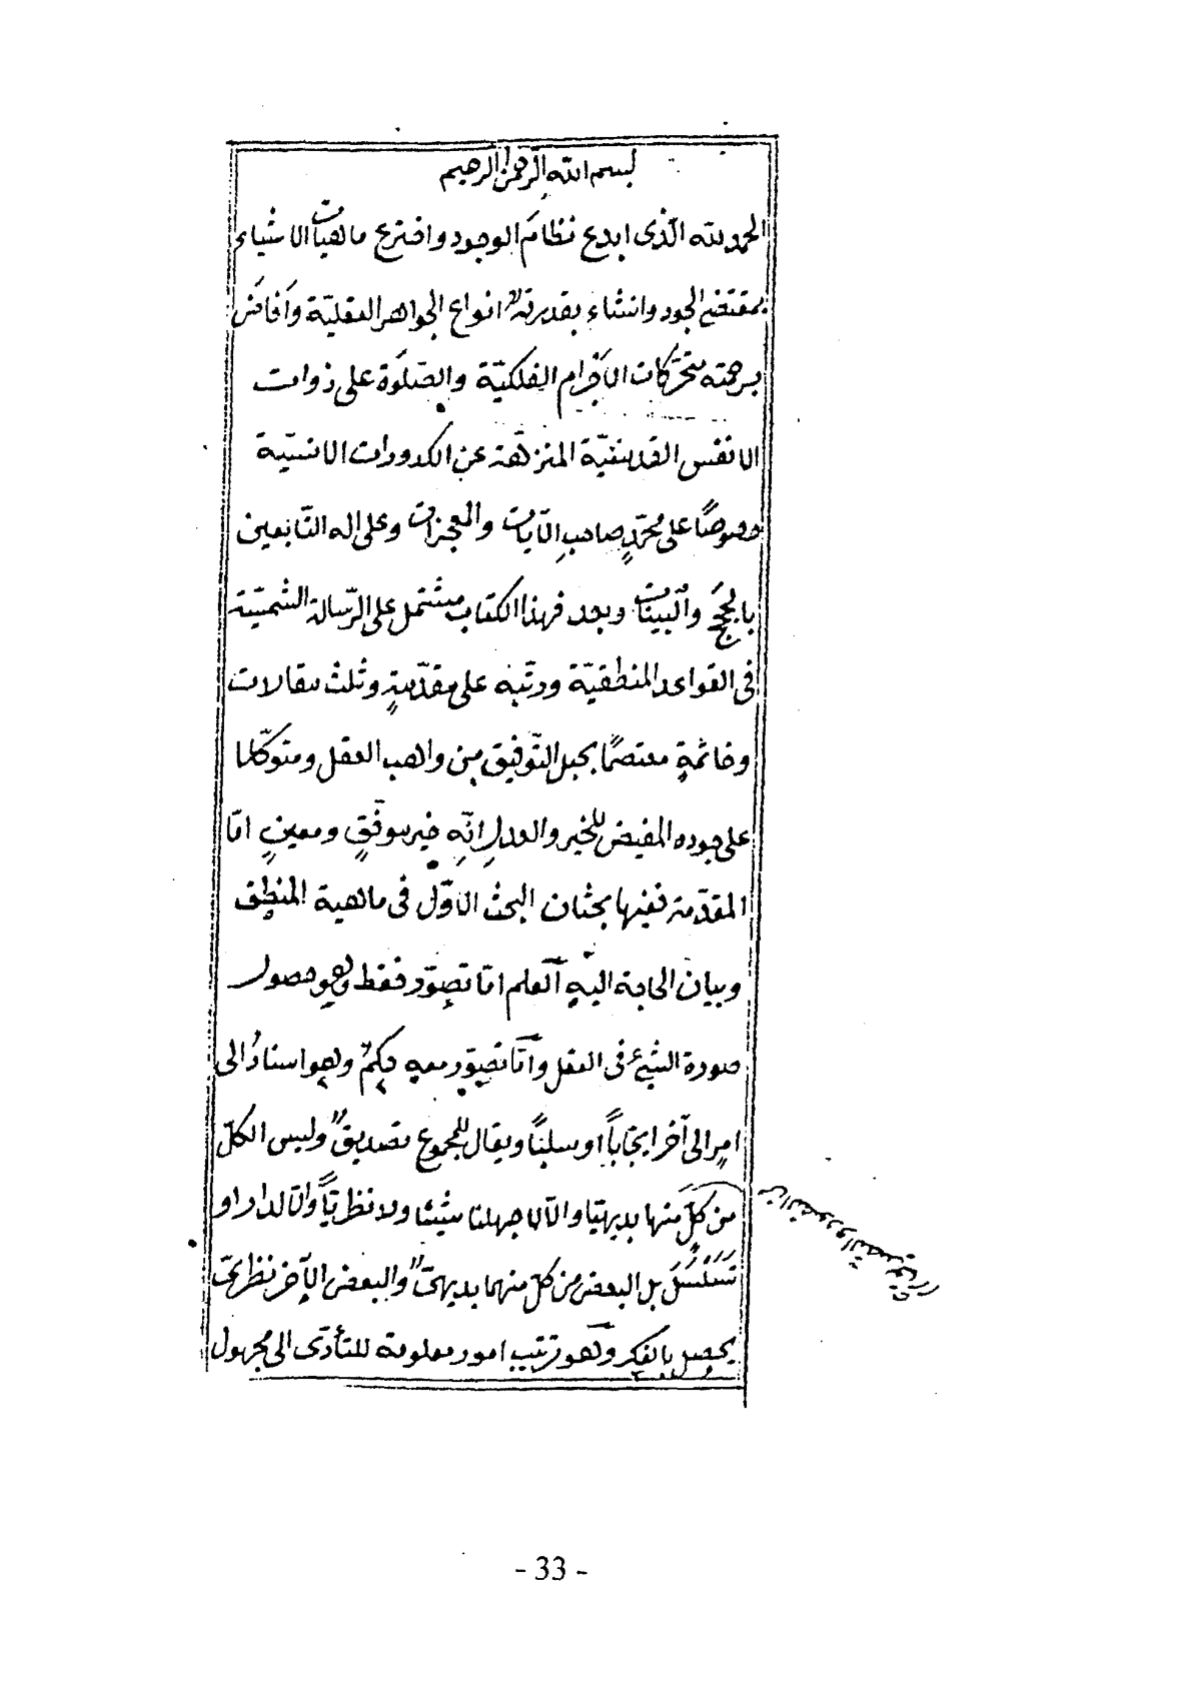 بسم الله الرحمن الرحيم
الحمد لله الّذى ابدع نظامَ الوجود واخترع ماهيات الاشياء
بمقتضى الجود وانشاء بقدرته انواع الجواهر العقليّة وَأفاضَ
برحمته متحرّكات الأجرام الفلكيّة والصّلوة على ذوات
الانفس القدسيّة المنزهّة عن الكدورات الانسيّة
خصوصًا على محمّدٍ صاحبِ الآيات والمعجزات وعلى اله التّابعين
بالحجَج والبينات وبعد فهذا الكتاب مشتمل على الرّسالة الشمسيّة
فى القواعد المنطقيّة ورتّبته على مقدّمةٍ وثلث مقالات
وخاتمةٍ معتصمًا بحبل التّوفيق من واهب العقل ومتوكّلا
على جوده المفيض للخير والعدلِ انّهِ خير موفّقٍ ومعينٍ امّا
المقدّمة ففيها بحثان البحث الاوّل فى ماهية المنطق
وبيان الحاجة اليه آلعلم امّا تصوّر فقط وهو حصول
صورة الشيئ فى العقل وآمّا تصوّر معه حكمٌ وهو اسنادُ الى
امرٍ الى آخر ايجاباً او سلبًا ويقال للمجموع تصديقٌ وليس الكلّ
من كلّ منها بديهيّا والّا لما جهلنا شيئا ولا نظريّاً والّا لدار او
تَسَلْسَلَ بل البعض من كلّ منهما بديهىّ والبعض الآخر نظرىّ
يحصل بالفكر وهو ترتيب امور معلومة للتأدّى الى مجهول
- 33 -